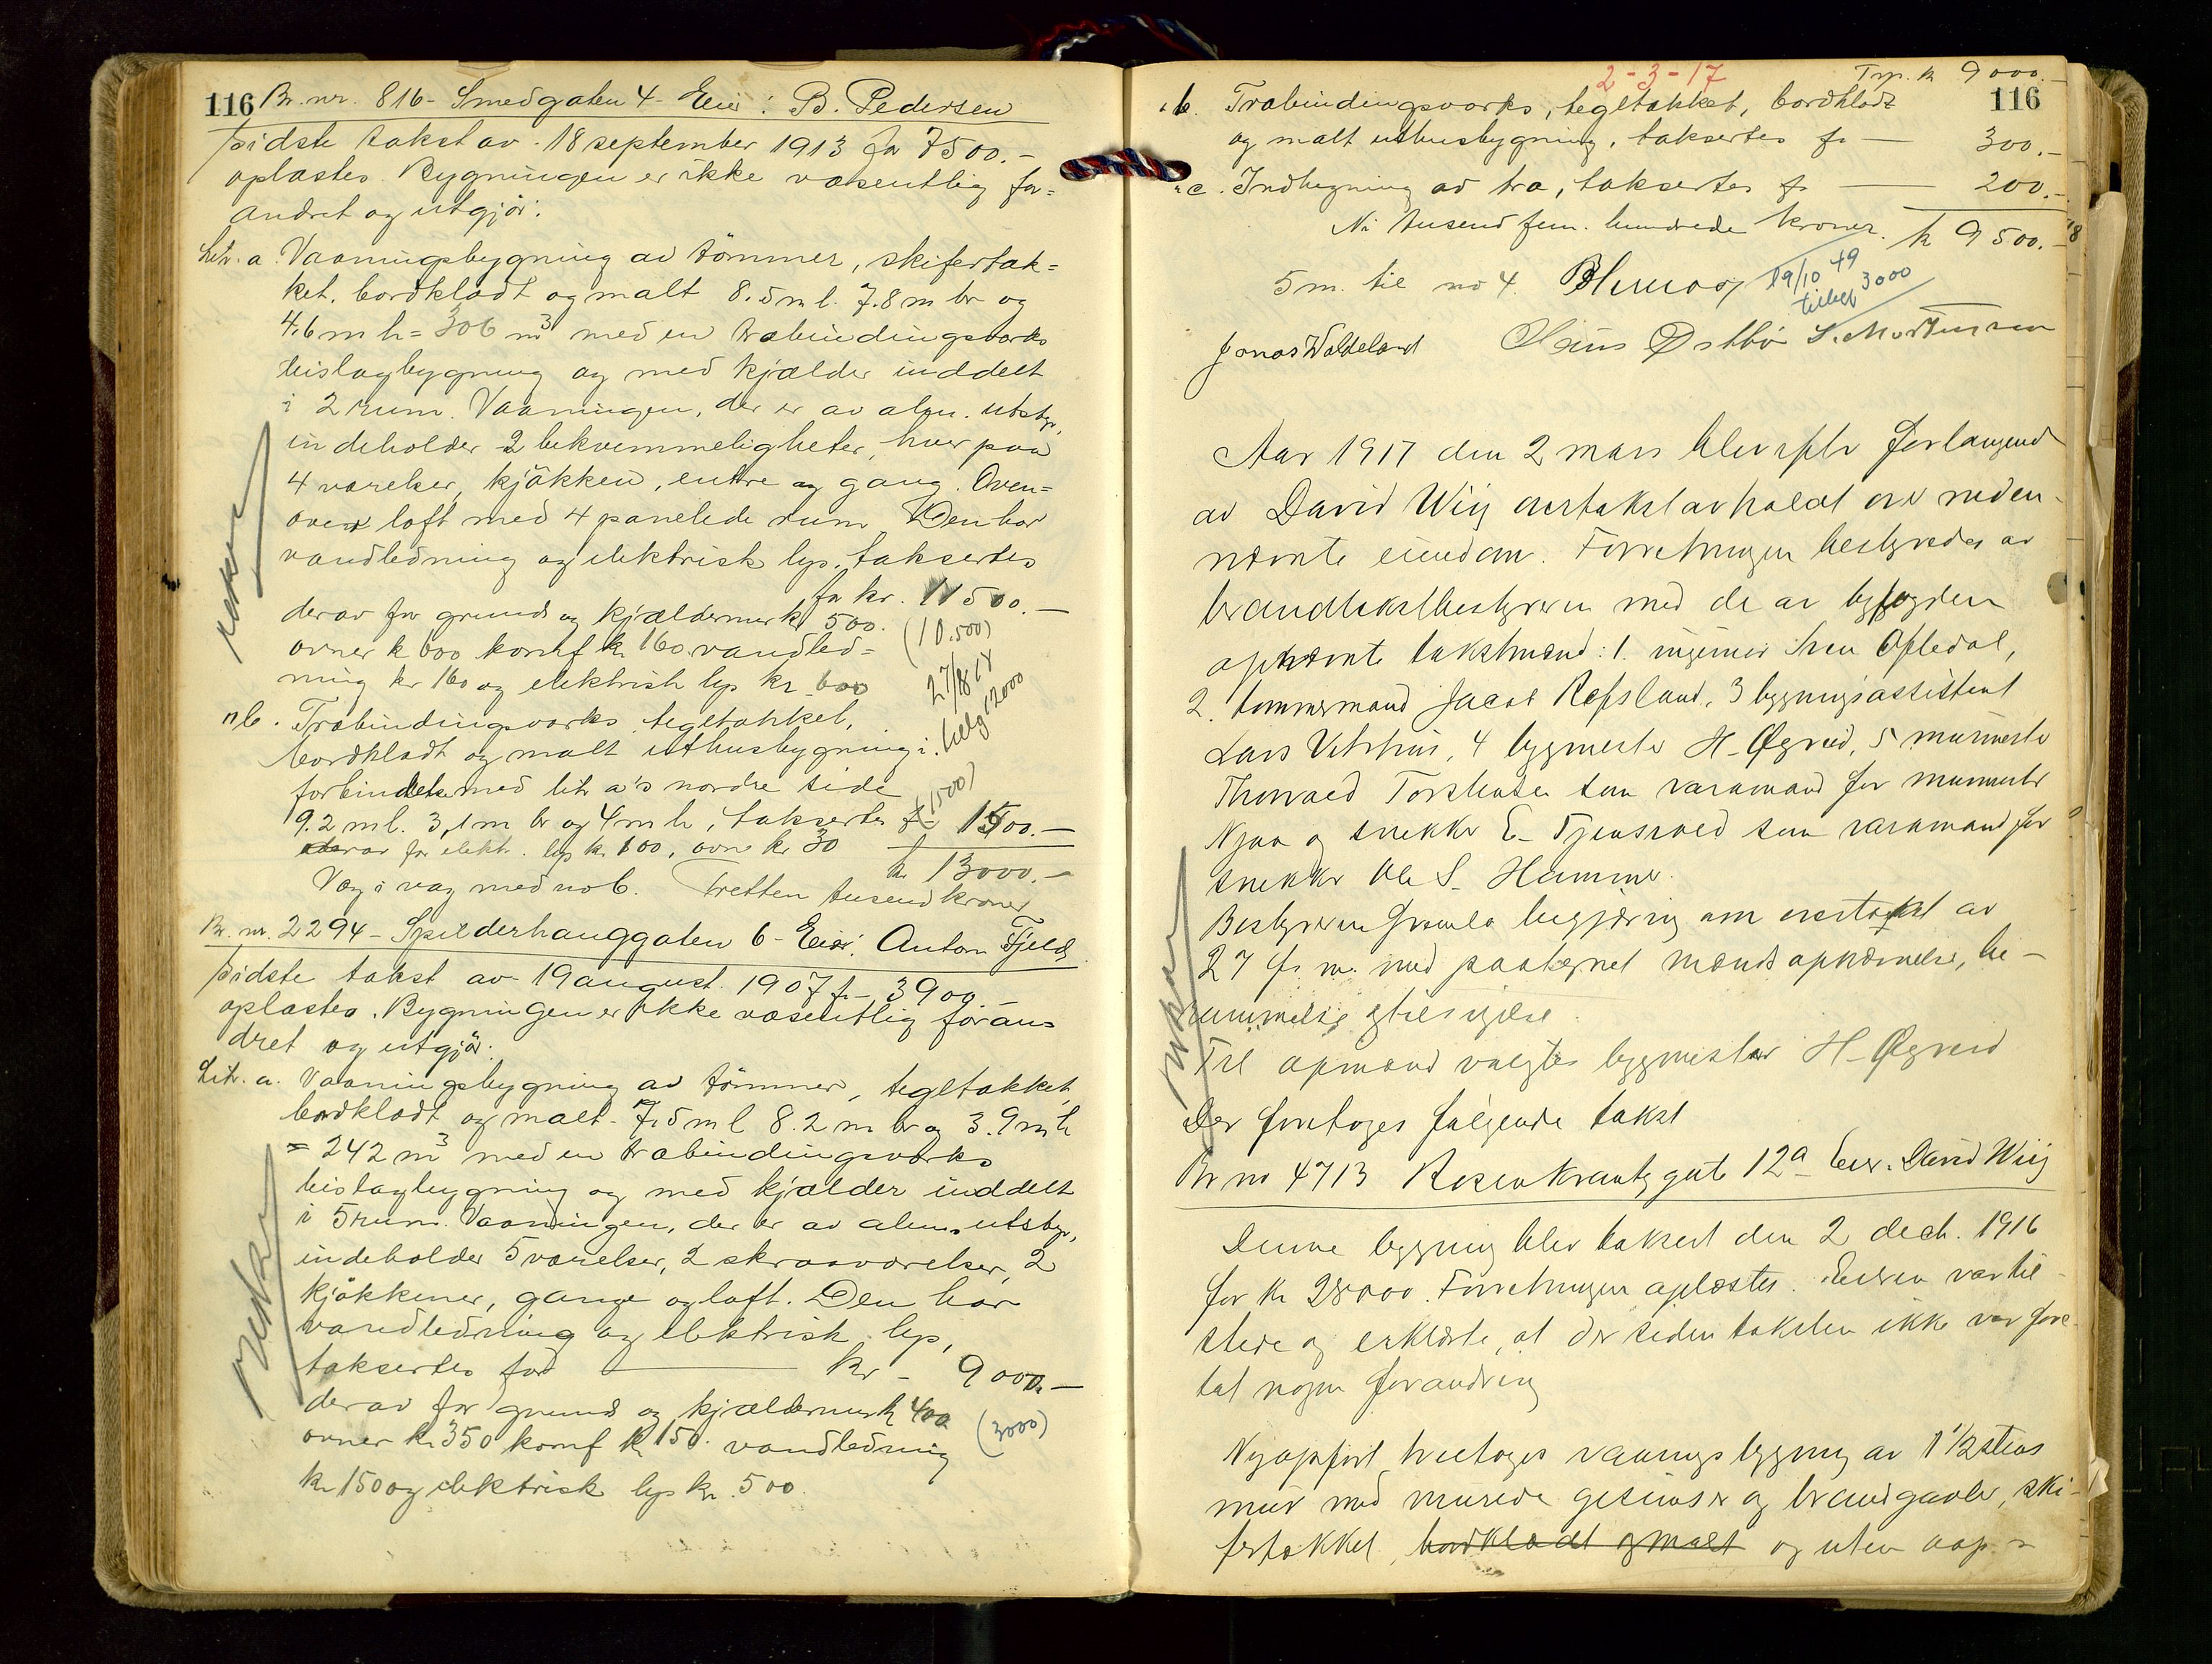 116 Br. nr. 816 - Smedgaten 4 - Eier: B. Pedersen
sidste takst av 18 september 1913 for 7500.-
oplæstes. Bygningen er ikke væsentlig for=
andret og utgjør:
Litr. a. Vaaningsbygning av tömmer, skifertæk=
ket, bordklædt og malt 8.5 m l. 7.8 m br og
4.6 m h = 306 m3 med en træbindingsværks
bislagbygning og med kjælder inddelt
i 2 rum. Vaaningen, der er av alm. utstyr,
indeholder 2 bekvemmeligheter, hver paa
4 værelser, kjøkken, entre og gang. Oven=
over loft med 4 panelede rum. Den har
vandledning og elektrisk lys, taksertes
for kr. 11500.-
derav for grund og kjældermur kr 500. (10.500)
ovner kr 600 komf kr 160 vandled=
ning kr 160 og elektrisk lys kr 600
27/8 18
tillæg 12000
" b. Træbindingsværks, tegltækket,
bordklædt og malt uthusbygning i
forbindelse med litr a's nordre side
9.2 m l. 3,1 m br og 4 m h, taksertes for 1500.-
(1500)
derav for elektr. lys kr 100, ovn kr 30
kr 13000.-
Væg i væg med no 6. Tretten tusend kroner
Br. nr. 2294 - Spilderhauggaten 6 - Eier: Anton Fjeld
sidste takst av 19 august 1907 for 3900.-
oplæstes. Bygningen er ikke væsentlig foran=
dret og utgjør:
Litr. a. Vaaningsbygning av tömmer, tegltækket,
bordklædt og malt. 7.5 m l 8.2 m br og 3.9 m h
= 242 m3 med en træbindingsværks
bislagbygning og med kjælder inddelt
i 5 rum. Vaaningen, der er av alm. utstyr,
indeholder 5 værelser, 2 skraaværelser, 2
kjøkkener, gange og loft. Den har
vandledning og elektrisk lys,
taksertes for kr - 9000.-
derav for grund og kjældermur kr 400
ovner kr 350 komf kr 150 vandledning (3000)
kr 150 og elektrisk lys kr. 500.
2-3-17
Trp. kr 9000.-
116
" b. Træbindingsværks, tegltækket, bordklædt
og malt uthusbygning, taksertes for 300.-
" c. Indhegning av træ, taksertes for 200.-
Ni tusend fem hundrede kroner. kr 9500.-
5 m. til no 4.
19/10 49
tillegg 3000
Jonas Waldeland Hans Østbö S. Mortensen
Aar 1917 den 2 mars blev efter forlangende
av David Wiig omtakst avholdt over neden-
nævnte eiendom. Forretningen bestyredes av
brandtakstbestyreren med de av byfogden
opnævnte takstmænd: 1. ingeniør Sven Oftedal,
2. tømmermand Jacob Refsland, 3 bygningsassistent
Lars Vetrhus, 4 bygmester H. Øgreid, 5 murmester
Thorvald Torstensen som varamand for murmester
Njaa og snekker E. Tjensvold som varamand for
snekker Ole S. Hammer.
Bestyreren fremla begjæring om omtakst av
27 f. m. med paategnet mændsopnævnelse, be-
rammelse og tilsigelse.
Til opmand valgtes bygmester H. Øgreid
Der foretoges følgende takst
Br no 4713 Rosenkrantzgate 12a Eier: David Wiig
Denne bygning blev taksert den 2 decb. 1916
for kr 28000. Forretningen oplæstes. Eieren var til-
stede og erklærte, at der siden taksten ikke var fore-
tat nogen forandring
Nyopført treetages vaaningsbygning av 1 1/2 stens
mur med murede gesimser og brandgavler, ski-
fertækket, bordklædt og malt og uten aap=